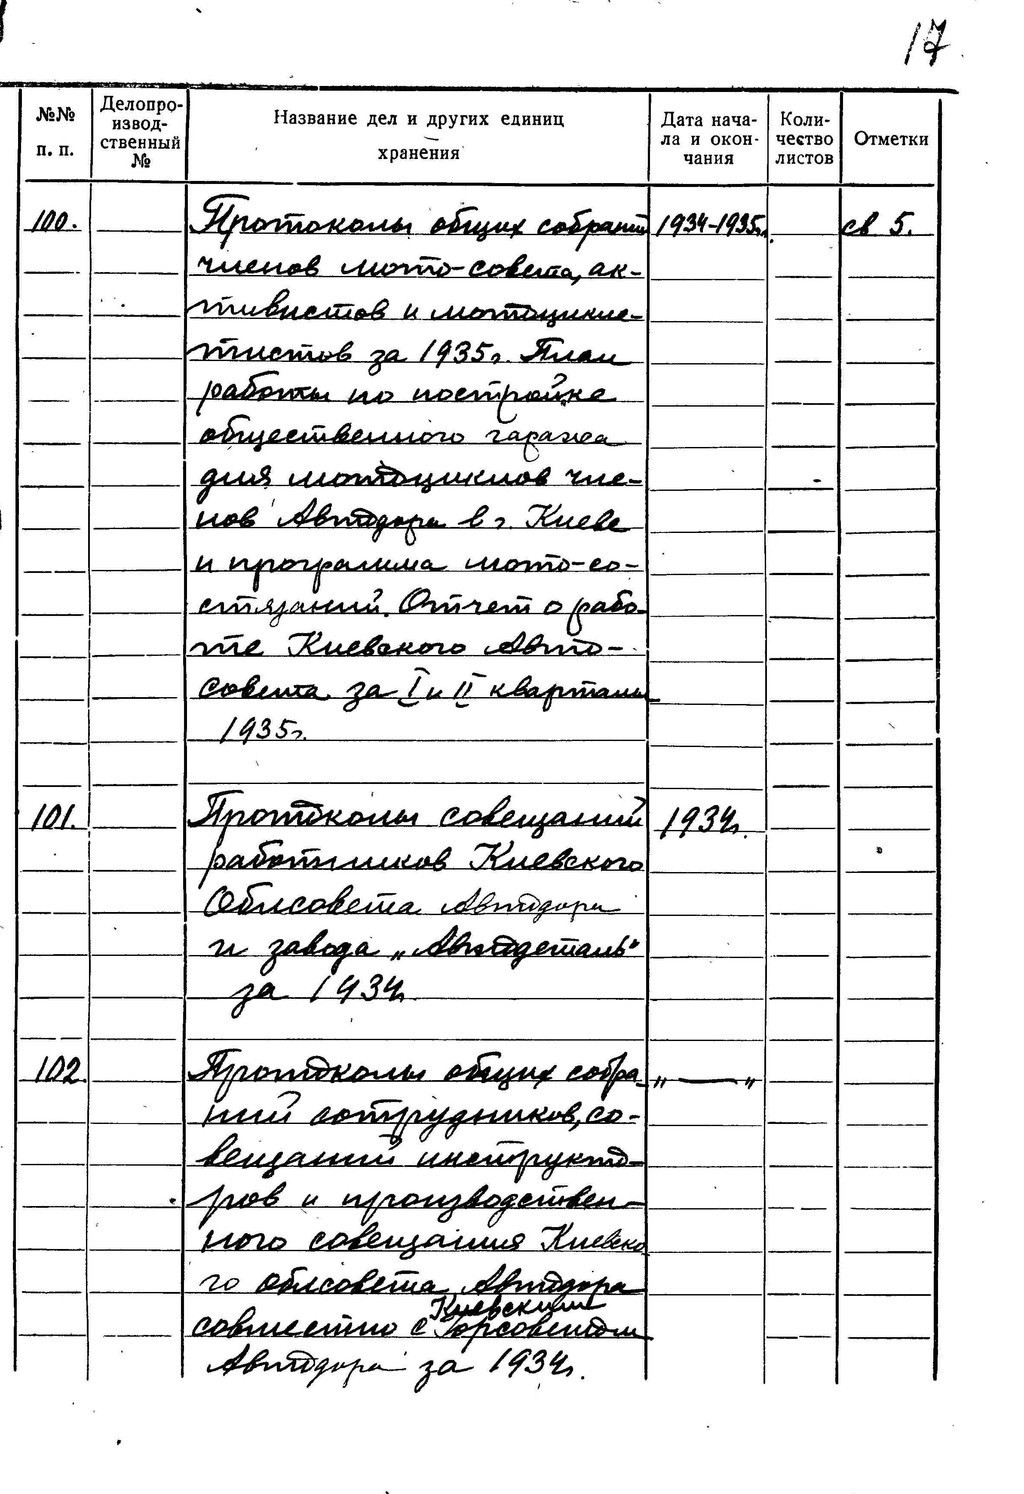 17
№№ п. п. Делопроизводственный № Название дел и других единиц хранения Дата начала и окончания Количество листов Отметки
100. Протоколы общих собраний 1934-1935гг. св 5.
членов мото-совета, ак-
тивистов и мотоцикле-
тистов за 1935г. План
работы по постройке
общественного гаража
для мотоциклов чле-
нов Автодора в г. Киеве
и программа мото-со-
стязаний. Отчет о рабо-
те Киевского Авто-
совета за I и II кварталы
1935г.
101. Протоколы совещаний 1934г.
работников Киевского
Облсовета Автодора
и завода „Автодеталь"
за 1934г.
102. Протоколы общих собра- „ — "
ний сотрудников, со-
вещаний инструкто-
ров и производствен-
ного совещания Киевско
го облсовета Автодора
совместно с Киевским Горсоветом
Автодора за 1934г.